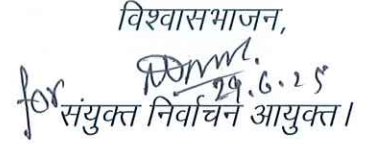 विश्वासभाजन,
29.6.25
for संयुक्त निर्वाचन आयुक्त।